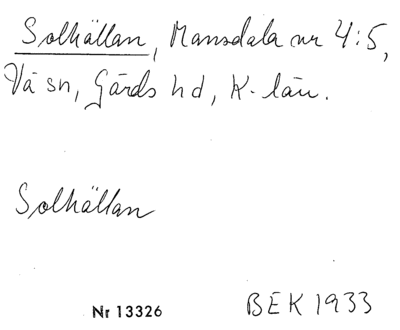 Solhällan, Mansdala nr 4:5,
Vä sn, Gärds hd, K. län.
Solhällan
Nr 13326 BEK 1933